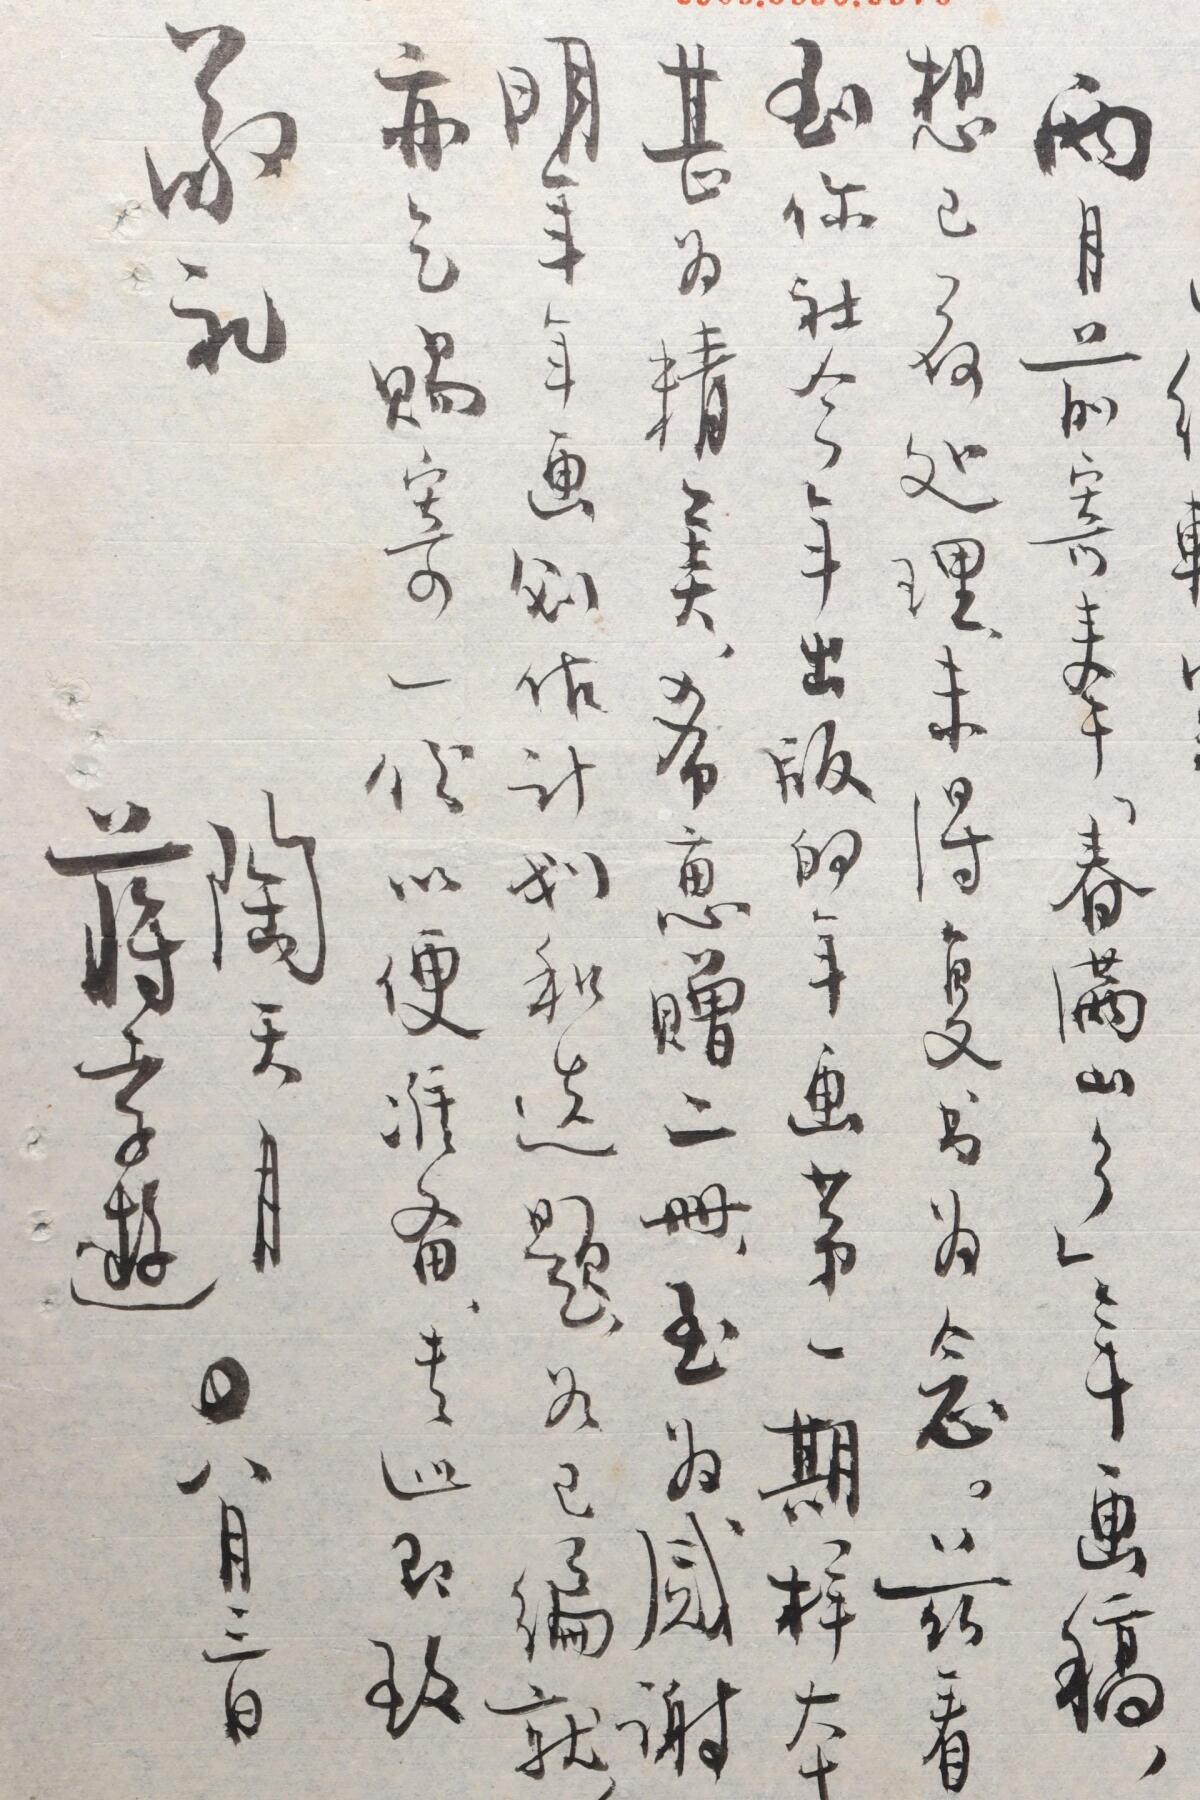 两月前寄来「春满山乡」年画稿，
想已蒙处理，未得复书为念。兹看
到你社今年出版的年画第一期样本
甚为精美，希惠赠二册，至为感谢
明年年画创作计划和选题，如已编就，
亦乞赐寄一份以便准备，专此即致
敬礼
陶天月
蒋孝游
八月三日